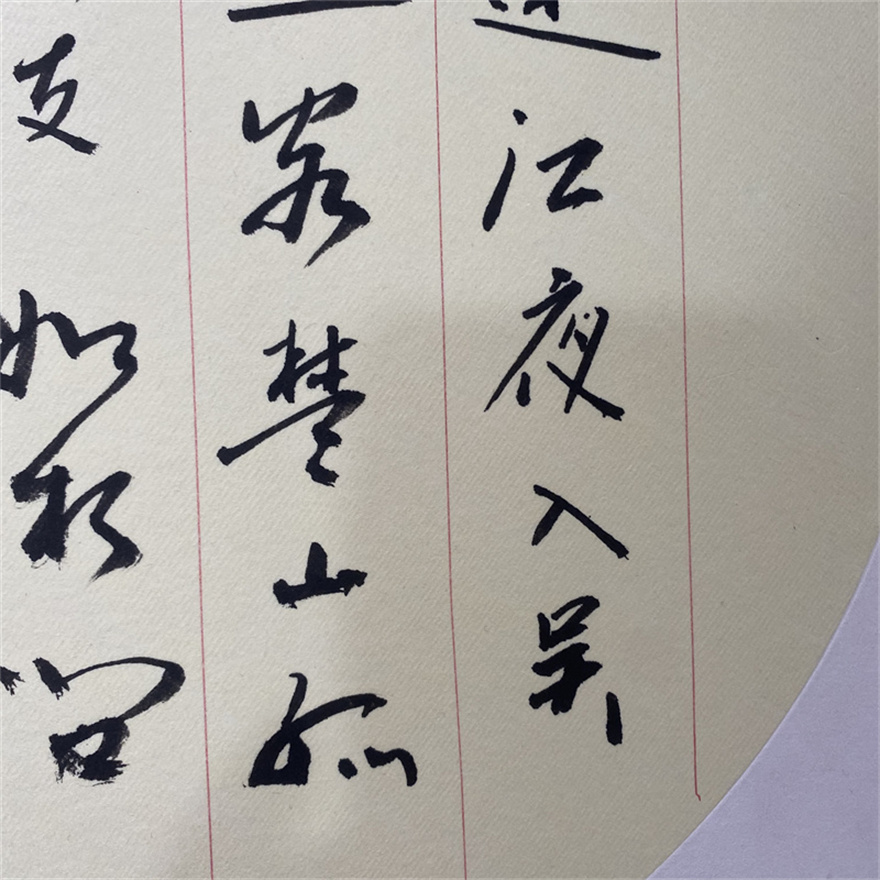 江夜入吴
客楚山孤
友如相问